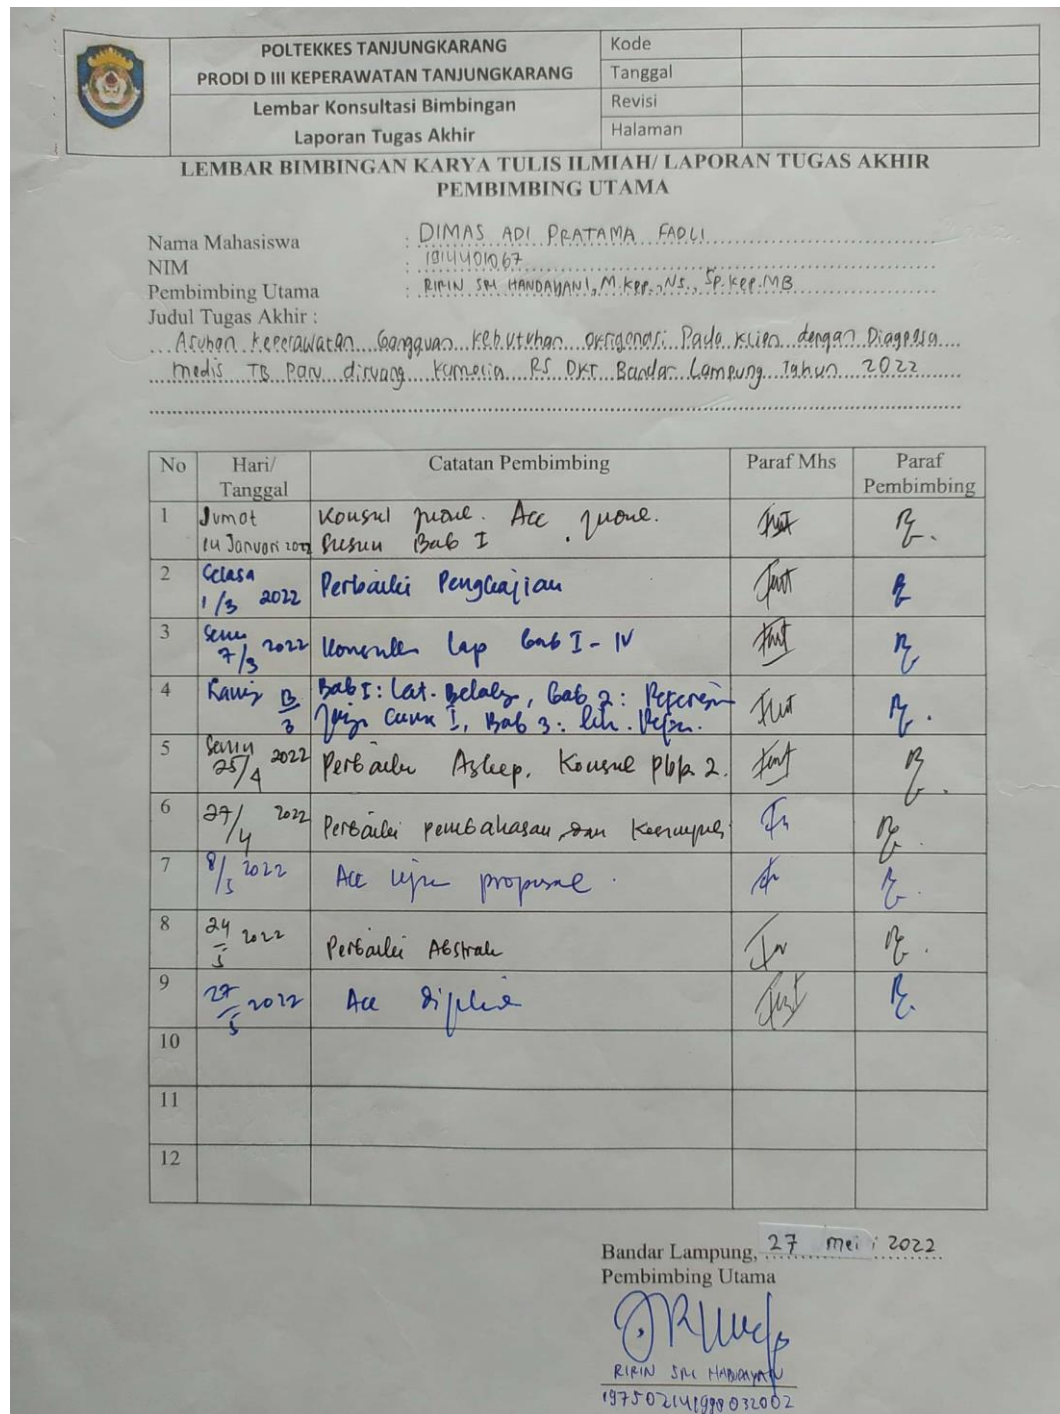 POLTEKKES TANJUNGKARANG
PRODI D III KEPERAWATAN TANJUNGKARANG
Lembar Konsultasi Bimbingan
Laporan Tugas Akhir
Kode
Tanggal
Revisi
Halaman
LEMBAR BIMBINGAN KARYA TULIS ILMIAH/ LAPORAN TUGAS AKHIR
PEMBIMBING UTAMA
Nama Mahasiswa : DIMAS ADI PRATAMA FADLI
NIM : 1914401067
Pembimbing Utama : RIRIN SRI HANDAYANI, M.Kep., Ns., Sp.Kep.MB
Judul Tugas Akhir :
Asuhan Keperawatan Gangguan Kebutuhan oksigenasi Pada Klien dengan Diagnosa
medis TB Paru diruang Kemuning RS DKT Bandar Lampung Tahun 2022
No Hari/ Tanggal Catatan Pembimbing Paraf Mhs Paraf Pembimbing
1 Jumat Konsul Acc
14 Januari 2022 Susun Bab I
2 Selasa
1/3 2022 Perbaiki Pengkajian
3 Senin
7/3 2022 Lap bab I - IV
4 Bab I: Lat. Belakg, bab 2:
3 I, Bab 3:
5 Senin
25/4 2022 Perbaiki Askep, Konsul 2.
6 27/4 2022 Perbaiki pembahasan dan
7 8/5 2022 Acc ujian proposal
8 24/5 2022 Perbaiki Abstrak
9 27/5 2022 Acc
10
11
12
Bandar Lampung, 27 mei 2022
Pembimbing Utama
RIRIN SRI HANDAYANI
197502141998032002